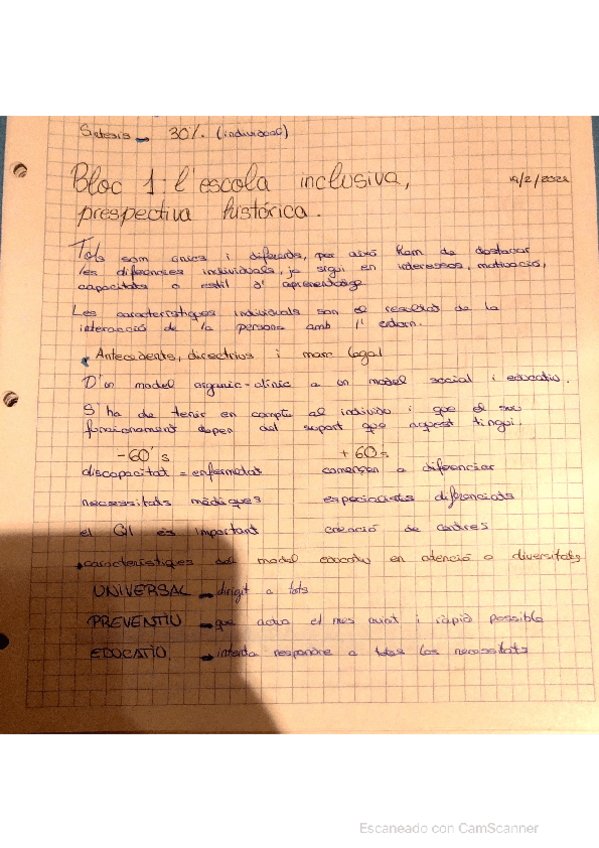 Sintesis → 30%. (individual)
Bloc 1: l'escola inclusiva,
prespectiva històrica.
Tots som únics i diferents, per això hem de destacar
les diferències individuals, ja sigui en interessos, motivació,
capacitats o estil d'aprenentatge
Les característiques individuals son el resultat de la
interacció de la persona amb l'entorn.
Antecedents, directrius i marc legal
D'un model organic-clínic a un model social i educatiu.
S'ha de tenir en compte al individu i que el seu
funcionament depen del suport que aquest tingui.
-60's +60's
discapacitat = enfermetat comencen a diferenciar
necessitats mèdiques especialistes diferenciats
el QI és important creació de centres
característiques del model educatiu en atenció a diversitats
UNIVERSAL → dirigit a tots
PREVENTIU → que actua el mes aviat i ràpid possible
EDUCATIO. → intenta respondre a totes les necessitats
Escaneado con CamScanner